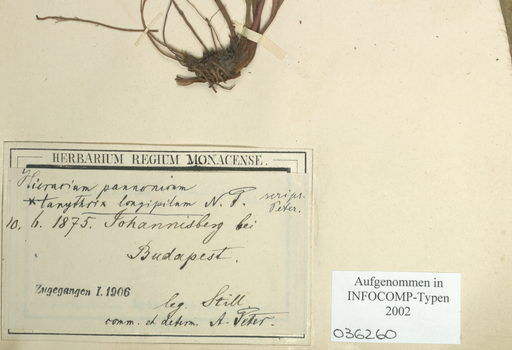 HERBARIUM REGIUM MONACENSE.
Hieracium pannonicum
* tanythrix longipilum N. P. scrips. Peter.
10. 6. 1875. Johannisberg bei
Budapest.
Zugegangen I. 1906
leg. Still
comm. et determ. A. Peter.
Aufgenommen in
INFOCOMP-Typen
2002
036260